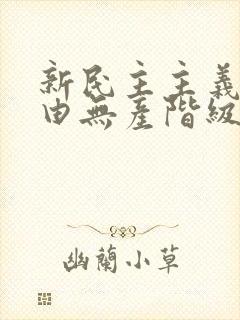 新民主主義
由無産階級
幽蘭小草